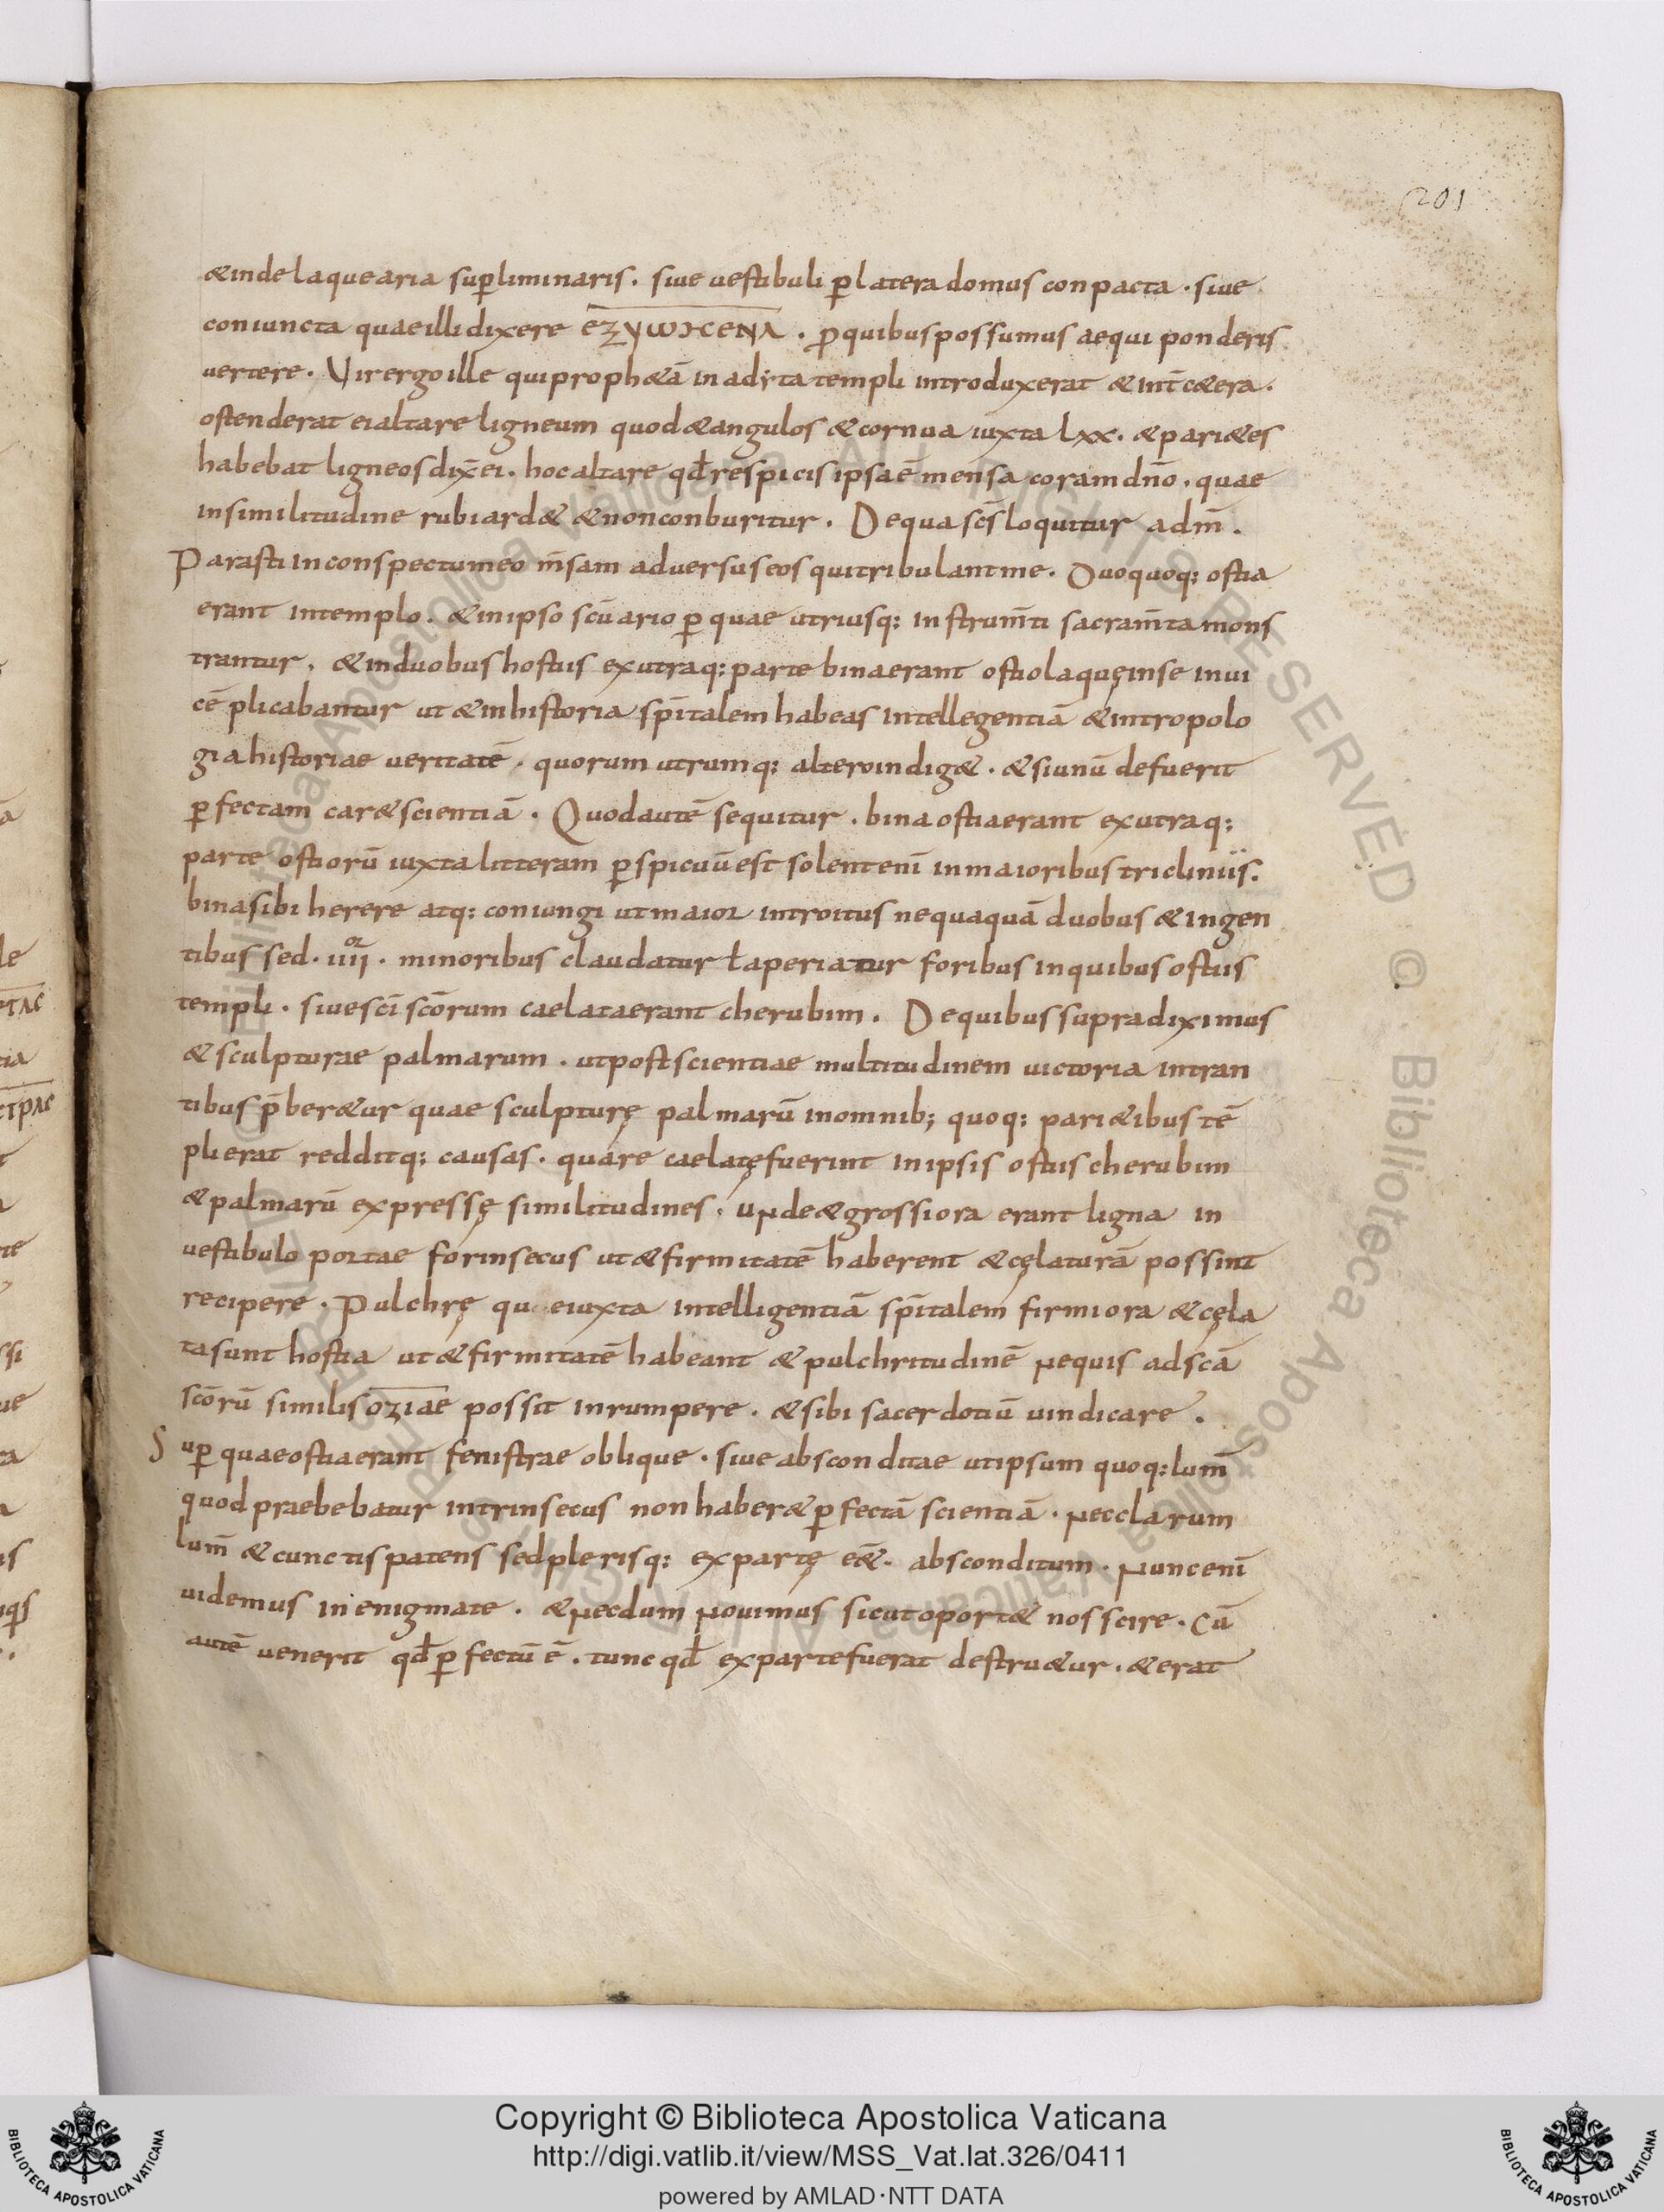 201
&inde laquearia sup̄liminaris. siue uestibuli p̄ latera domus conpacta. siue
coniuncta quae illi dixere εζyωκενα. p̄ quibus possumus aequi ponderis
uertere. Vir ergo ille qui proph&ā in adyta templi introduxerat & int̄ c&era.
ostenderat ei altare ligneum quod & angulos & cornua iuxta lxx. & pari&es
habebat ligneos dix̄ ei. hoc altare qd̄ respicis ipsa ē mensa coram dn̄o. quae
in similitudine rubi ard& & non conburitur. De qua sc̄s loquitur ad m̄.
Parasti in conspectu meo m̄sam aduersus eos qui tribulant me. Duo quoq; ostia
erant in templo. & in ipso sc̄uario p̄ quae utriusq; instrum̄ti sacram̄ta mons
trantur. & in duobus hostiis ex utraq; parte bina erant ostiola quę in se inui
cē plicabantur ut & in historia sp̄italem habeas intellegentiā & in tropolo
gia historiae ueritatē. quorum utrumq; altero indig&. & si unū defuerit
p̄fectam car& scientiā. Quod autē sequitur. bina ostia erant ex utraq;
parte ostiorū iuxta litteram p̄spicuū est solent eni̅ in maioribus tricliniis.
bina sibi herere atq; coniungi ut maior introitus nequaquā duobus & ingen
tibus sed. iiii or. minoribus claudatur ł aperiatur foribus in quibus ostiis
templi. siue sc̄i sc̄orum caelata erant cherubim. De quibus supra diximus
& sculpturae palmarum. ut post scientiae multitudinem uictoria intran
tibus p̄ber&ur quae sculpturę palmarū in omnib; quoq; pari&ibus tē
pli erat redditq; causas. quare caelatę fuerint in ipsis ostiis cherubim
& palmarū expressę similitudines. unde & grossiora erant ligna in
uestibulo portae forinsecus ut & firmitatē haberent & cęlaturā possint
recipere. Pulchrę qu e iuxta intelligentiā sp̄italem firmiora & cęla
ta sunt hostia ut & firmitatē habeant & pulchritudinē ne quis ad sc̄ā
sc̄orū similis oziae possit inrumpere. & sibi sacerdotiū uindicare.
Sup̄ quae ostia erant fenistrae oblique. siue absconditae ut ipsum quoq; lum̄
quod praebebatur intrinsecus non haber& p̄fectā scientiā. nec clarum
lum̄ & cunctis patens sed plerisq; ex partę eē&. absconditum. nunc eni̅
uidemus in enigmate. & necdum nouimus sicut oport& nos scire. Cū
autē uenerit qd̄ p̄fectū ē. tunc qd̄ ex parte fuerat destru&ur. & erat
Copyright © Biblioteca Apostolica Vaticana
http://digi.vatlib.it/view/MSS_Vat.lat.326/0411
powered by AMLAD·NTT DATA